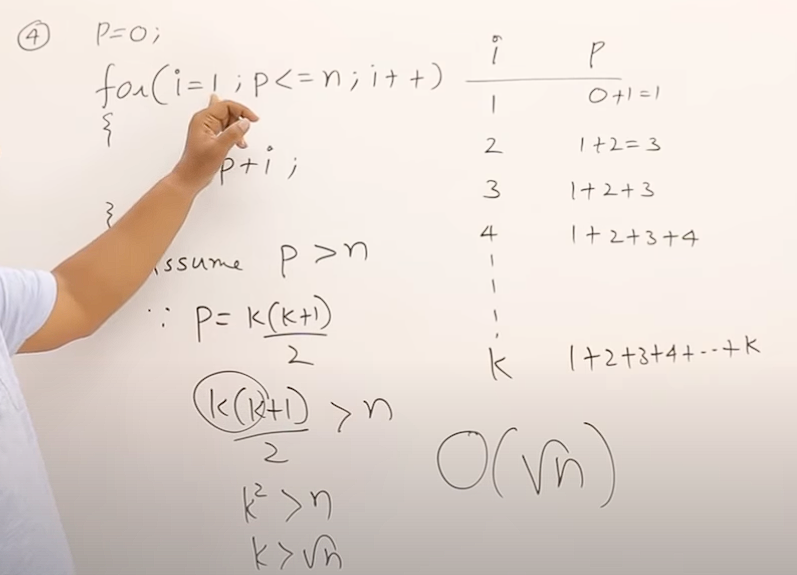 4 P=0;
for(i=1;p<=n;i++)
{
p+i;
}
ssume p>n
∵ P=k(k+1)/2
k(k+1)/2 > n
k² > n
k > √n
i P
1 0+1=1
2 1+2=3
3 1+2+3
4 1+2+3+4
k 1+2+3+4+--+k
O(√n)